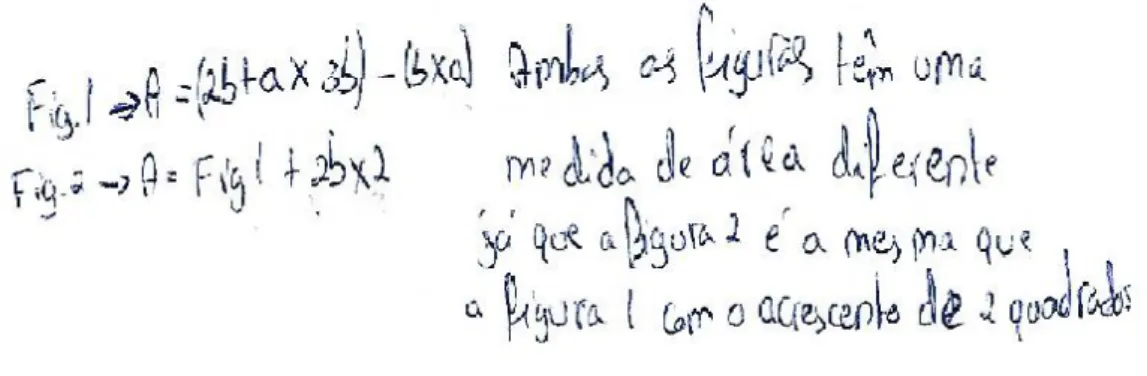 Fig.1 → A = (2b+a x 3b) - (b x a)
Fig.2 → A = Fig 1 + 2b x 2
Ambas as figuras têm uma
medida de área diferente
já que a figura 2 é a mesma que
a figura 1 com o acrescento de 2 quadrados